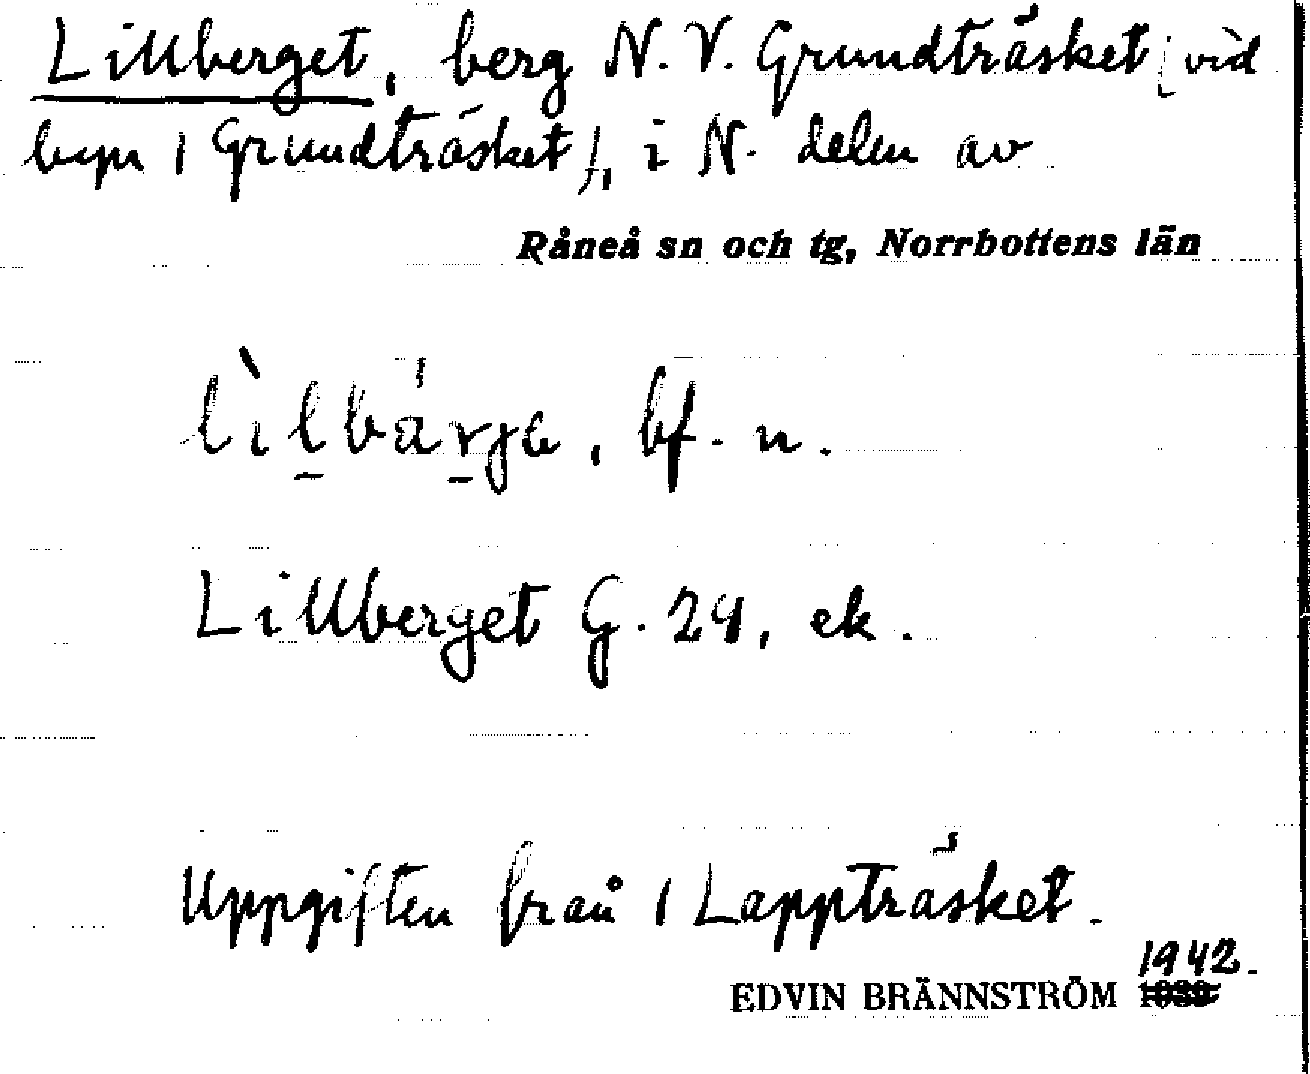 Lillberget, berg N.V. Grundträsket [vid
byn / Grundträsket], i N. delen av
Råneå sn och tg, Norrbottens län
bf. n.
Lillberget G. 24, ek.
Uppgiften från / Lappträsket.
1942.
EDVIN BRÄNNSTRÖM